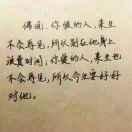 佛曰：你恨的人，来生
不会再见，所以别在他身上
浪费时间；你爱的人，来生也
不会再见，所以今生要好好
对他。